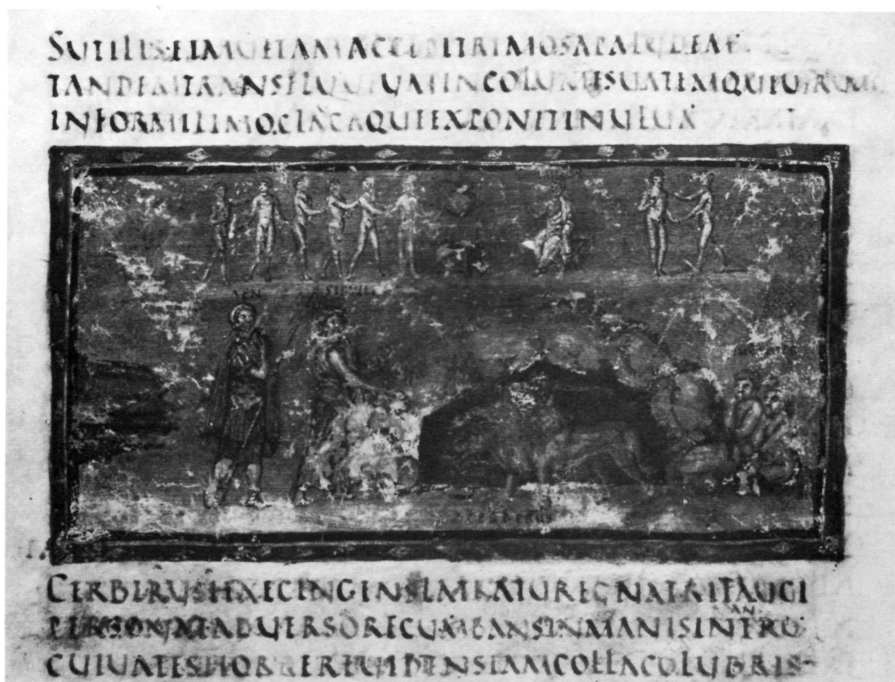 SUTILISETMULTAMACCEPITRIMOSAPALUDE
TANDEMTRANSFLUUIUMINCOLUMISUATEMQUEUIRUM
INFORMILIMOGLAUCAQUEEXPONITINULUA
AEN
CERBERUSHAECINGENSLATRATUREGNATRIFAUCI
AN
PERSONATADUERSORECUBANSINMANISINTRO
CUIUATESHORREREUIDENSIAMCOLLACOLUBRIS